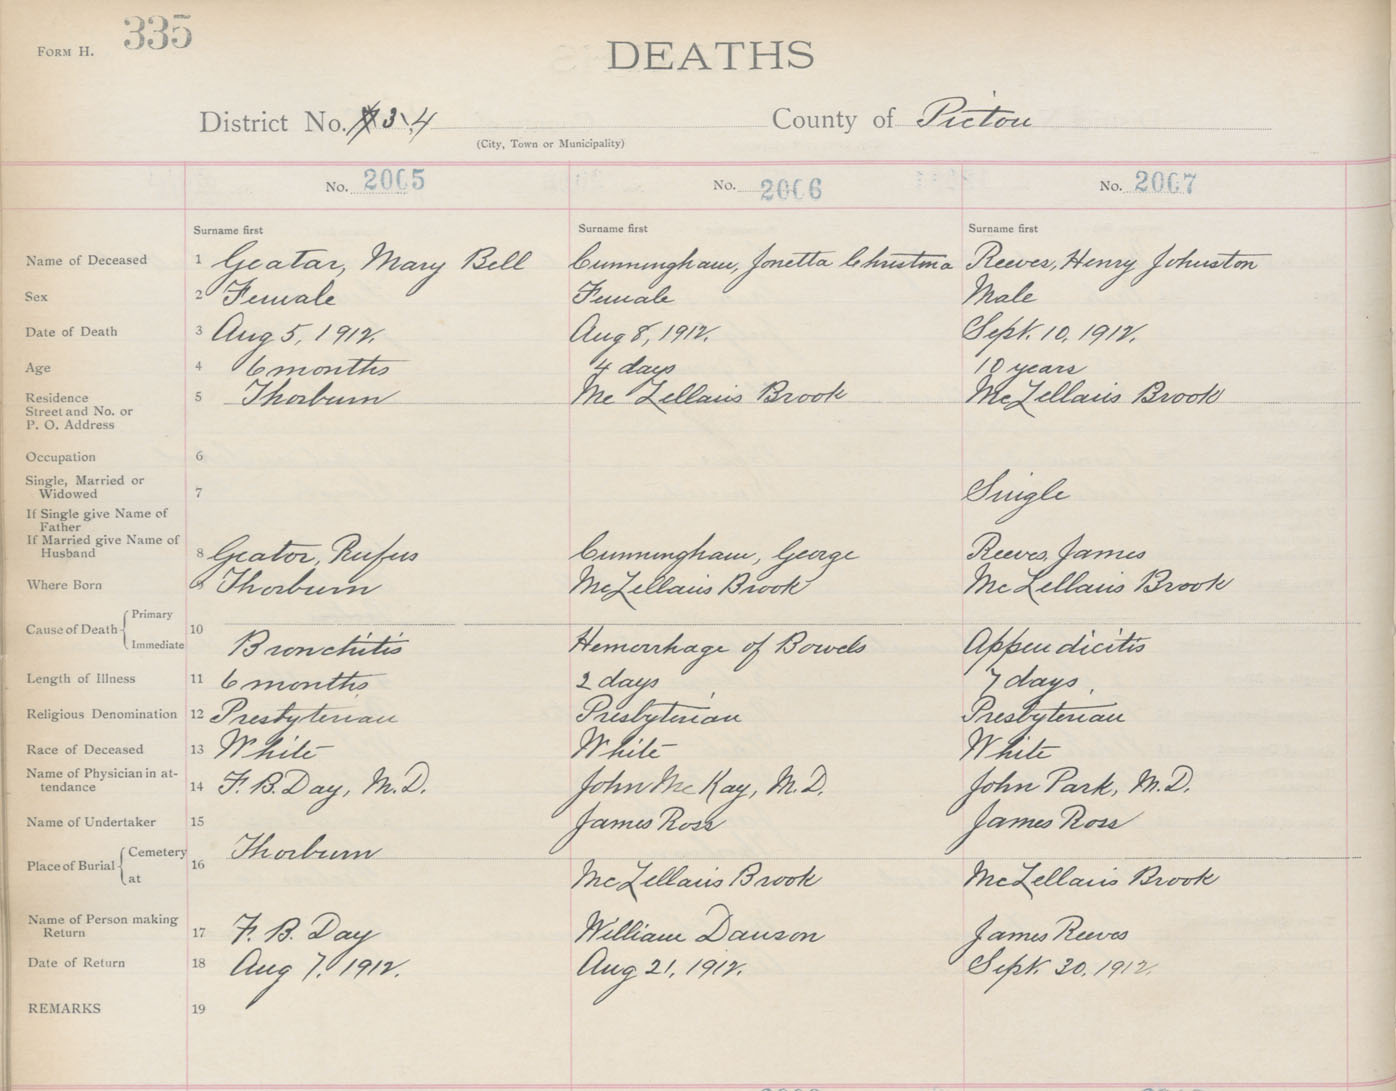 335
FORM H.
DEATHS
District No. 34 County of Pictou
(City, Town or Municipality)
No. 2005 No. 2006 No. 2007
Surname first Surname first Surname first
Name of Deceased 1 Geatar, Mary Bell Cunningham, Jonetta Christina Reeves, Henry Johnston
Sex 2 Female Female Male
Date of Death 3 Aug 5, 1912. Aug 8, 1912. Sept. 10, 1912.
Age 4 6 months 4 days 10 years
Residence 5 Thorburn Mc Lellans Brook McLellans Brook
Street and No. or
P. O. Address
Occupation 6
Single, Married or
Widowed 7 Single
If Single give Name of
Father
If Married give Name of
Husband 8 Geator, Rufus Cunningham, George Reeves, James
Where Born 9 Thorburn McLellans Brook McLellans Brook
Cause of Death Primary
10
Immediate Bronchitis Hemorrhage of Bowels Appendicitis
Length of Illness 11 6 months 2 days 7 days
Religious Denomination 12 Presbyterian Presbyterian Presbyterian
Race of Deceased 13 White White White
Name of Physician in at-
tendance 14 F. B. Day, M.D. John McKay, M.D. John Park, M.D.
Name of Undertaker 15 James Ross James Ross
Place of Burial Cemetery Thorburn
16
at McLellans Brook McLellans Brook
Name of Person making
Return 17 F. B. Day William Dawson James Reeves
Date of Return 18 Aug 7, 1912. Aug 21, 1912. Sept. 30, 1912.
REMARKS 19